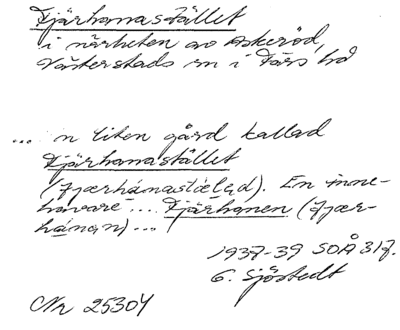 Fjärhanastället
i närheten av Askeröd,
Västerstads sn i Färs hd
... n liten gård kallad
Fjärhanastället
(fjærhánastæ̀lad). En inne-
havare .... Fjärhanen (fjær-
hánan) ...
1937-39 SOÅ 317.
G. Sjöstedt
Nr 25304